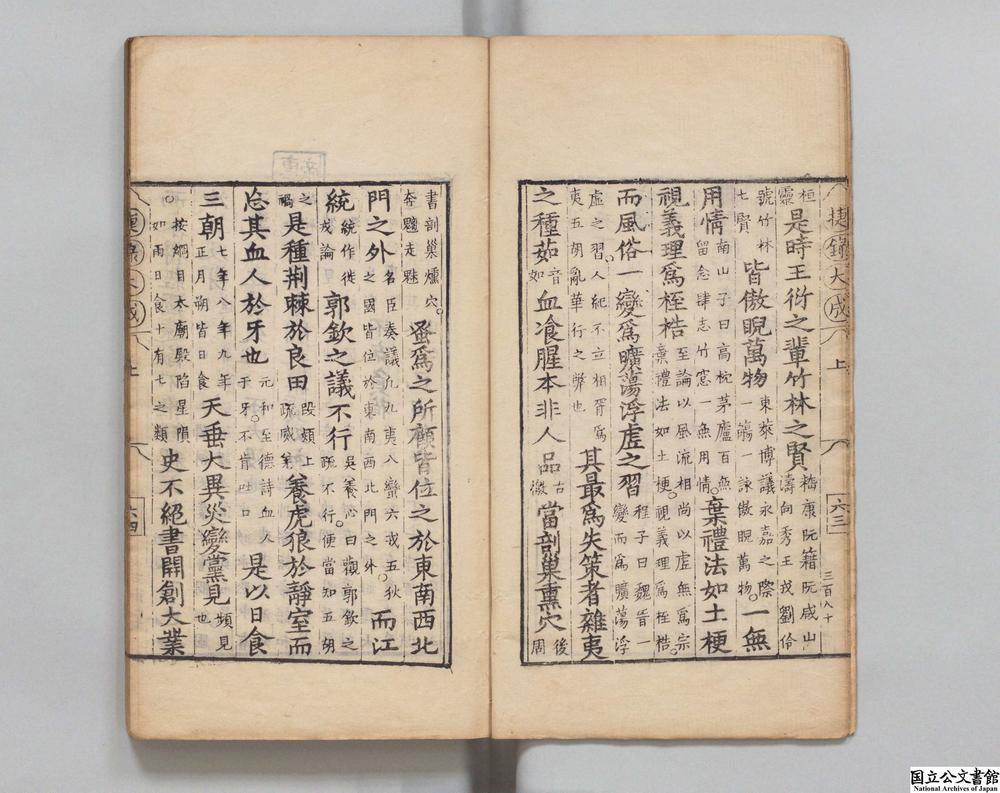 捷錄大成 上 六三 三百八十
桓靈是時王衍之輩竹林之賢嵇康阮籍阮咸山濤向秀王戎劉伶
號竹林七賢皆傲睨萬物東萊博議永嘉之際一觴一詠傲睨萬物。一無
用情南山子曰高枕茅廬百無留念肆志竹窓一無用情。棄禮法如土梗
視義理爲桎梏至論以風流相尚以虛無爲宗棄禮法如土梗。視義理爲桎梏。
而風俗一變爲曠蕩浮虛之習程子曰魏晉一變而爲曠蕩浮
虛之習。人紀不立相胥爲夷五胡亂華行之弊也其最爲失策者雜夷
之種茹音如血飡腥本非人品古微當剖巢熏穴後周
書剖巢燻穴。奔魑走魅蚤爲之所顧皆位之於東南西北
門之外名臣奏議九夷八蠻六戎五狄之國皆位於東南西北門之外而江
統統作徙戎論郭欽之議不行吳養心曰觀郭欽之疏不行。便當知五胡
之禍是種荆棘於良田段熲上疏威第養虎狼於靜室而
忘其血人於牙也元和至德詩血人于牙。不肯吐口是以日食
三朝七年八年九年正月朔皆日食天垂大異災變黨見頻見也
。按綱目太廟殿陷星隕如雨日食十有七之類史不絕書開創大業
捷錄大成 上 六四
国立公文書館
National Archives of Japan